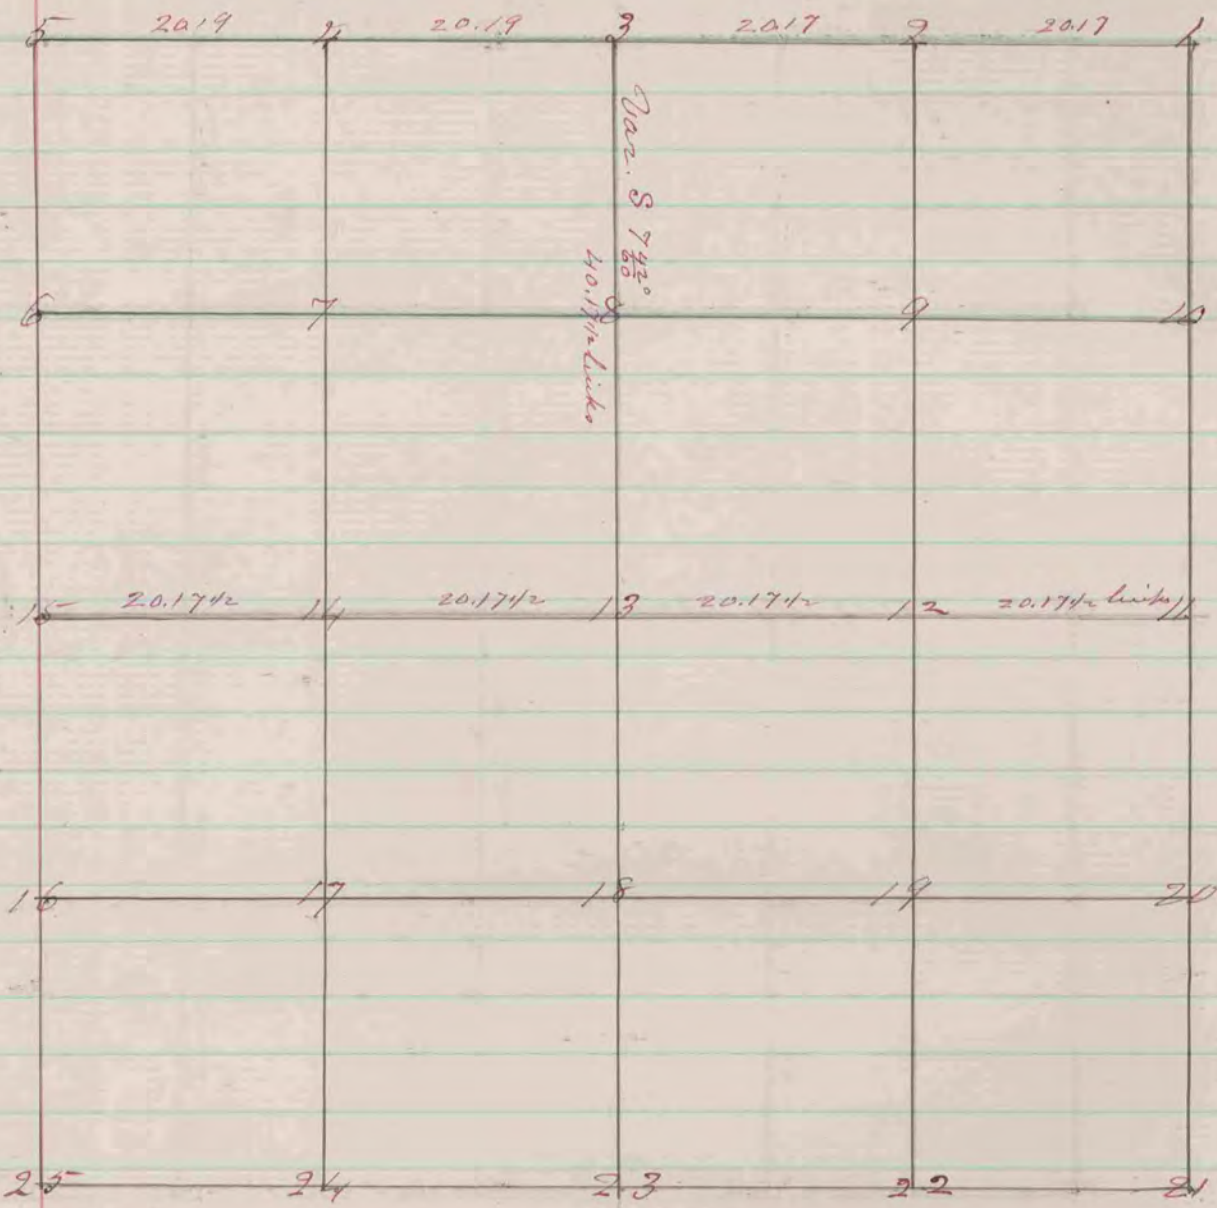 5 20.19 4 20.19 3 20.17 2 20.17 1
Var. S 7 42/60°
40.17 1/2 links
6 7 8 9 10
15 20.17 1/2 14 20.17 1/2 13 20.17 1/2 12 20.17 1/2 links 11
16 17 18 19 20
25 24 23 22 21